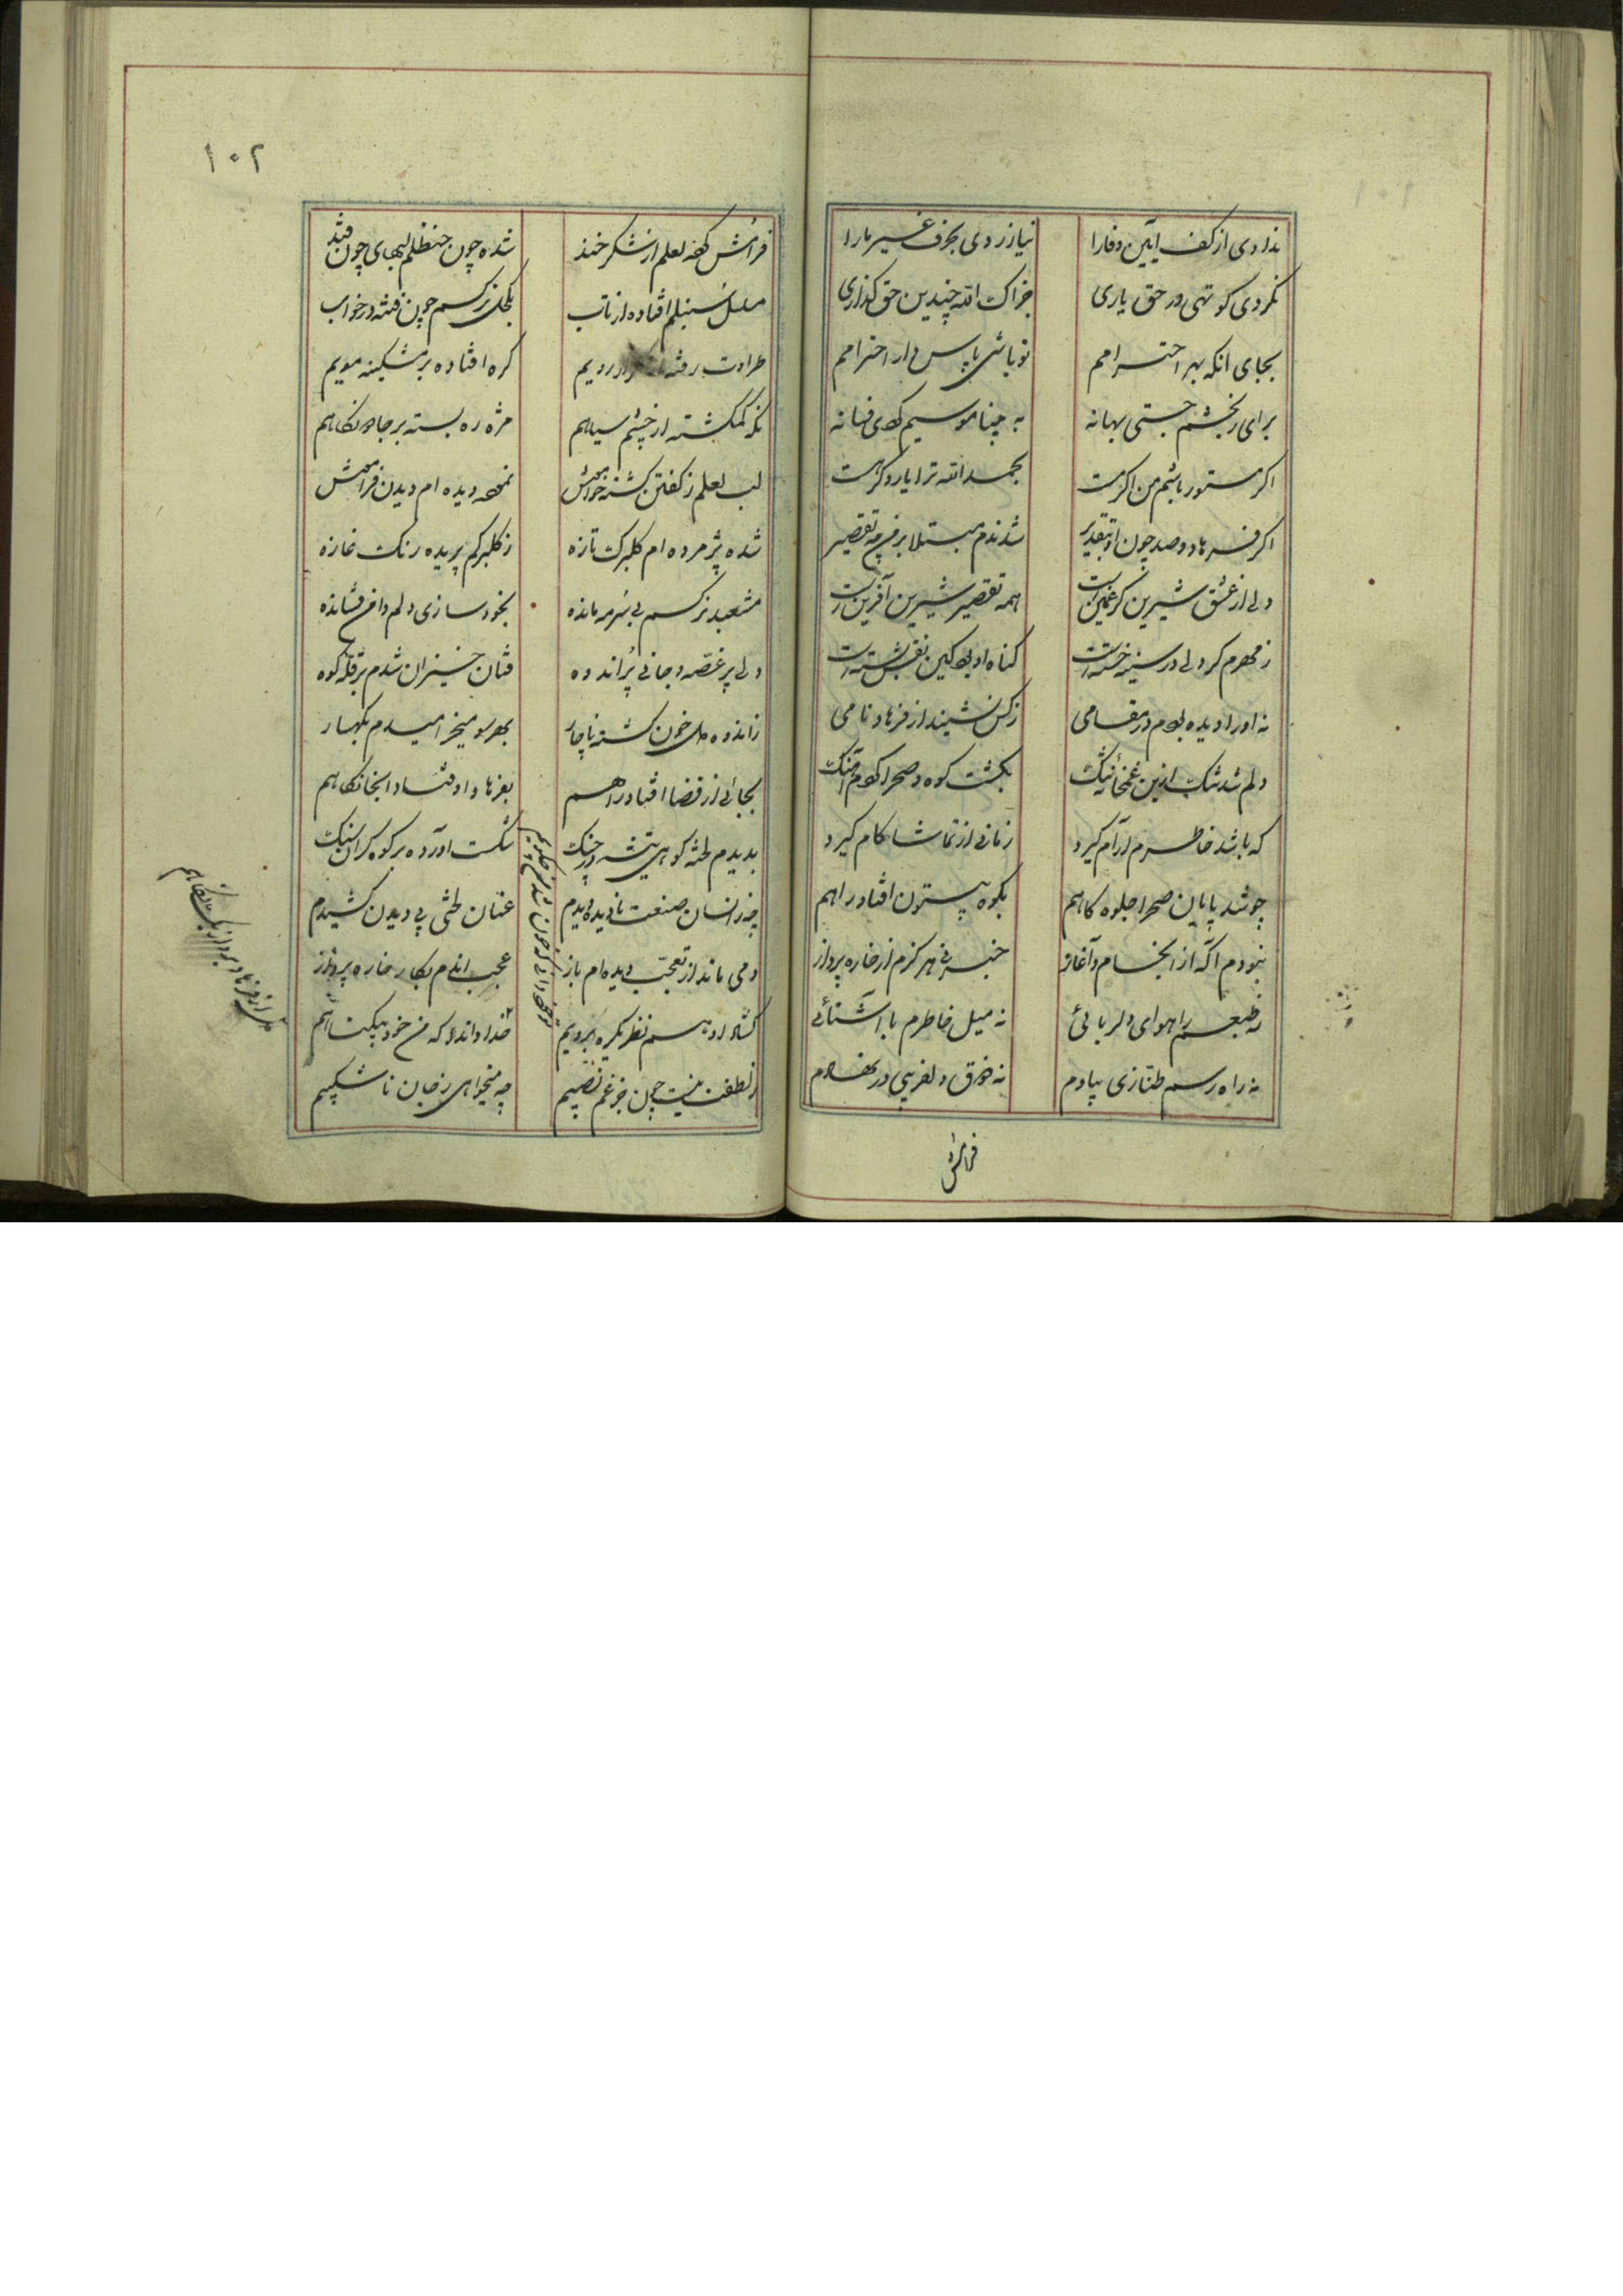 ندادی از کف آیین وفا را نیازردی بحرف غیر ما را
نکردی کوتهی در حق یاری جزاک الله چنین حق گذاری
بجای انکه بهر احترامم تو باشی پاس دار احترامم
برای رنجشم جستی بهانه به بیناموسیم کردی فسانه
اگر مستور باشم من اگر مست بحمدالله ترا یار دگر هست
اگر فرهاد و صد چون او بتقدیر شدندم مبتلا بر من چه تقصیر
ولی از عشق شیرین گر غمین است همه تقصیر شیرین آفرین است
ز مهرم گر دلی در سینه خسته است گناه او بود کین نقش بسته است
نه او را دیده بودم در مقامی ز کس نشنید از فرهاد نامی
دلم شد تنگ ازین غمخانه تنگ بگشت کوه و صحرا کردم آهنگ
که باشد خاطرم آرام گیرد زمانی از تماشا کام گیرد
چو شد پایان صحرا جلوه گاهم بکوه بیستون افتاد راهم
نبودم آگه از انجام و آغاز خبر نی هرگزم از خاره پرداز
نه طبعم را هوای دلربائی نه میل خاطرم با آشنائی
نه راه و رسم طنازی بیادم نه ذوق دلفریبی در نهادم
فرامش
۱۰۲
فرامش کرده لعلم از شکر خند شده چون حنظلم لبهای چون قند
مسلسل سنبلم افتاده از تاب بکحلی نرگسم چون فتنه در خواب
طراوت رفته از رویم گره افتاده بر مشکینه مویم
نگه گم گشته از چشم سیاهم مژه ره بسته بر جادو نگاهم
لب لعلم ز گفتن گشته خاموش نموده دیده ام دیدن فراموش
شده پژمرده ام گلبرگ تازه ز گلبرگم پریده رنگ غازه
مشعبد نرگسم بی سرمه مانده بخودسازی دلم دامن فشانده
دلی پر غصه و جانی پر اندوه فتان خیزان شدم بر قله کوه
ز اندوه دل خون گشته ناچار بهر سو میخرامیدم بکهسار
بجائی از قضا افتاد راهم بفرهاد اوفتاد انجا نگاهم
بدیدم لخته کوهی تیشه در چنگ شکست آورده بر کوه گران سنگ
چه زانسان صنعت نادیده دیدم عنان لختی پی دیدن کشیدم
دمی ماند از تعجب دیده ام باز عجب ماندم بکار خاره پرداز
گشاد او هم نظر یکره برویم
خدا داند که من خود بیگناهم
ز لطفت نیست چون جز غم نصیبم چه میخواهی ز جان ناشکیبم
دل از فرهاد برد از یک نگاهم